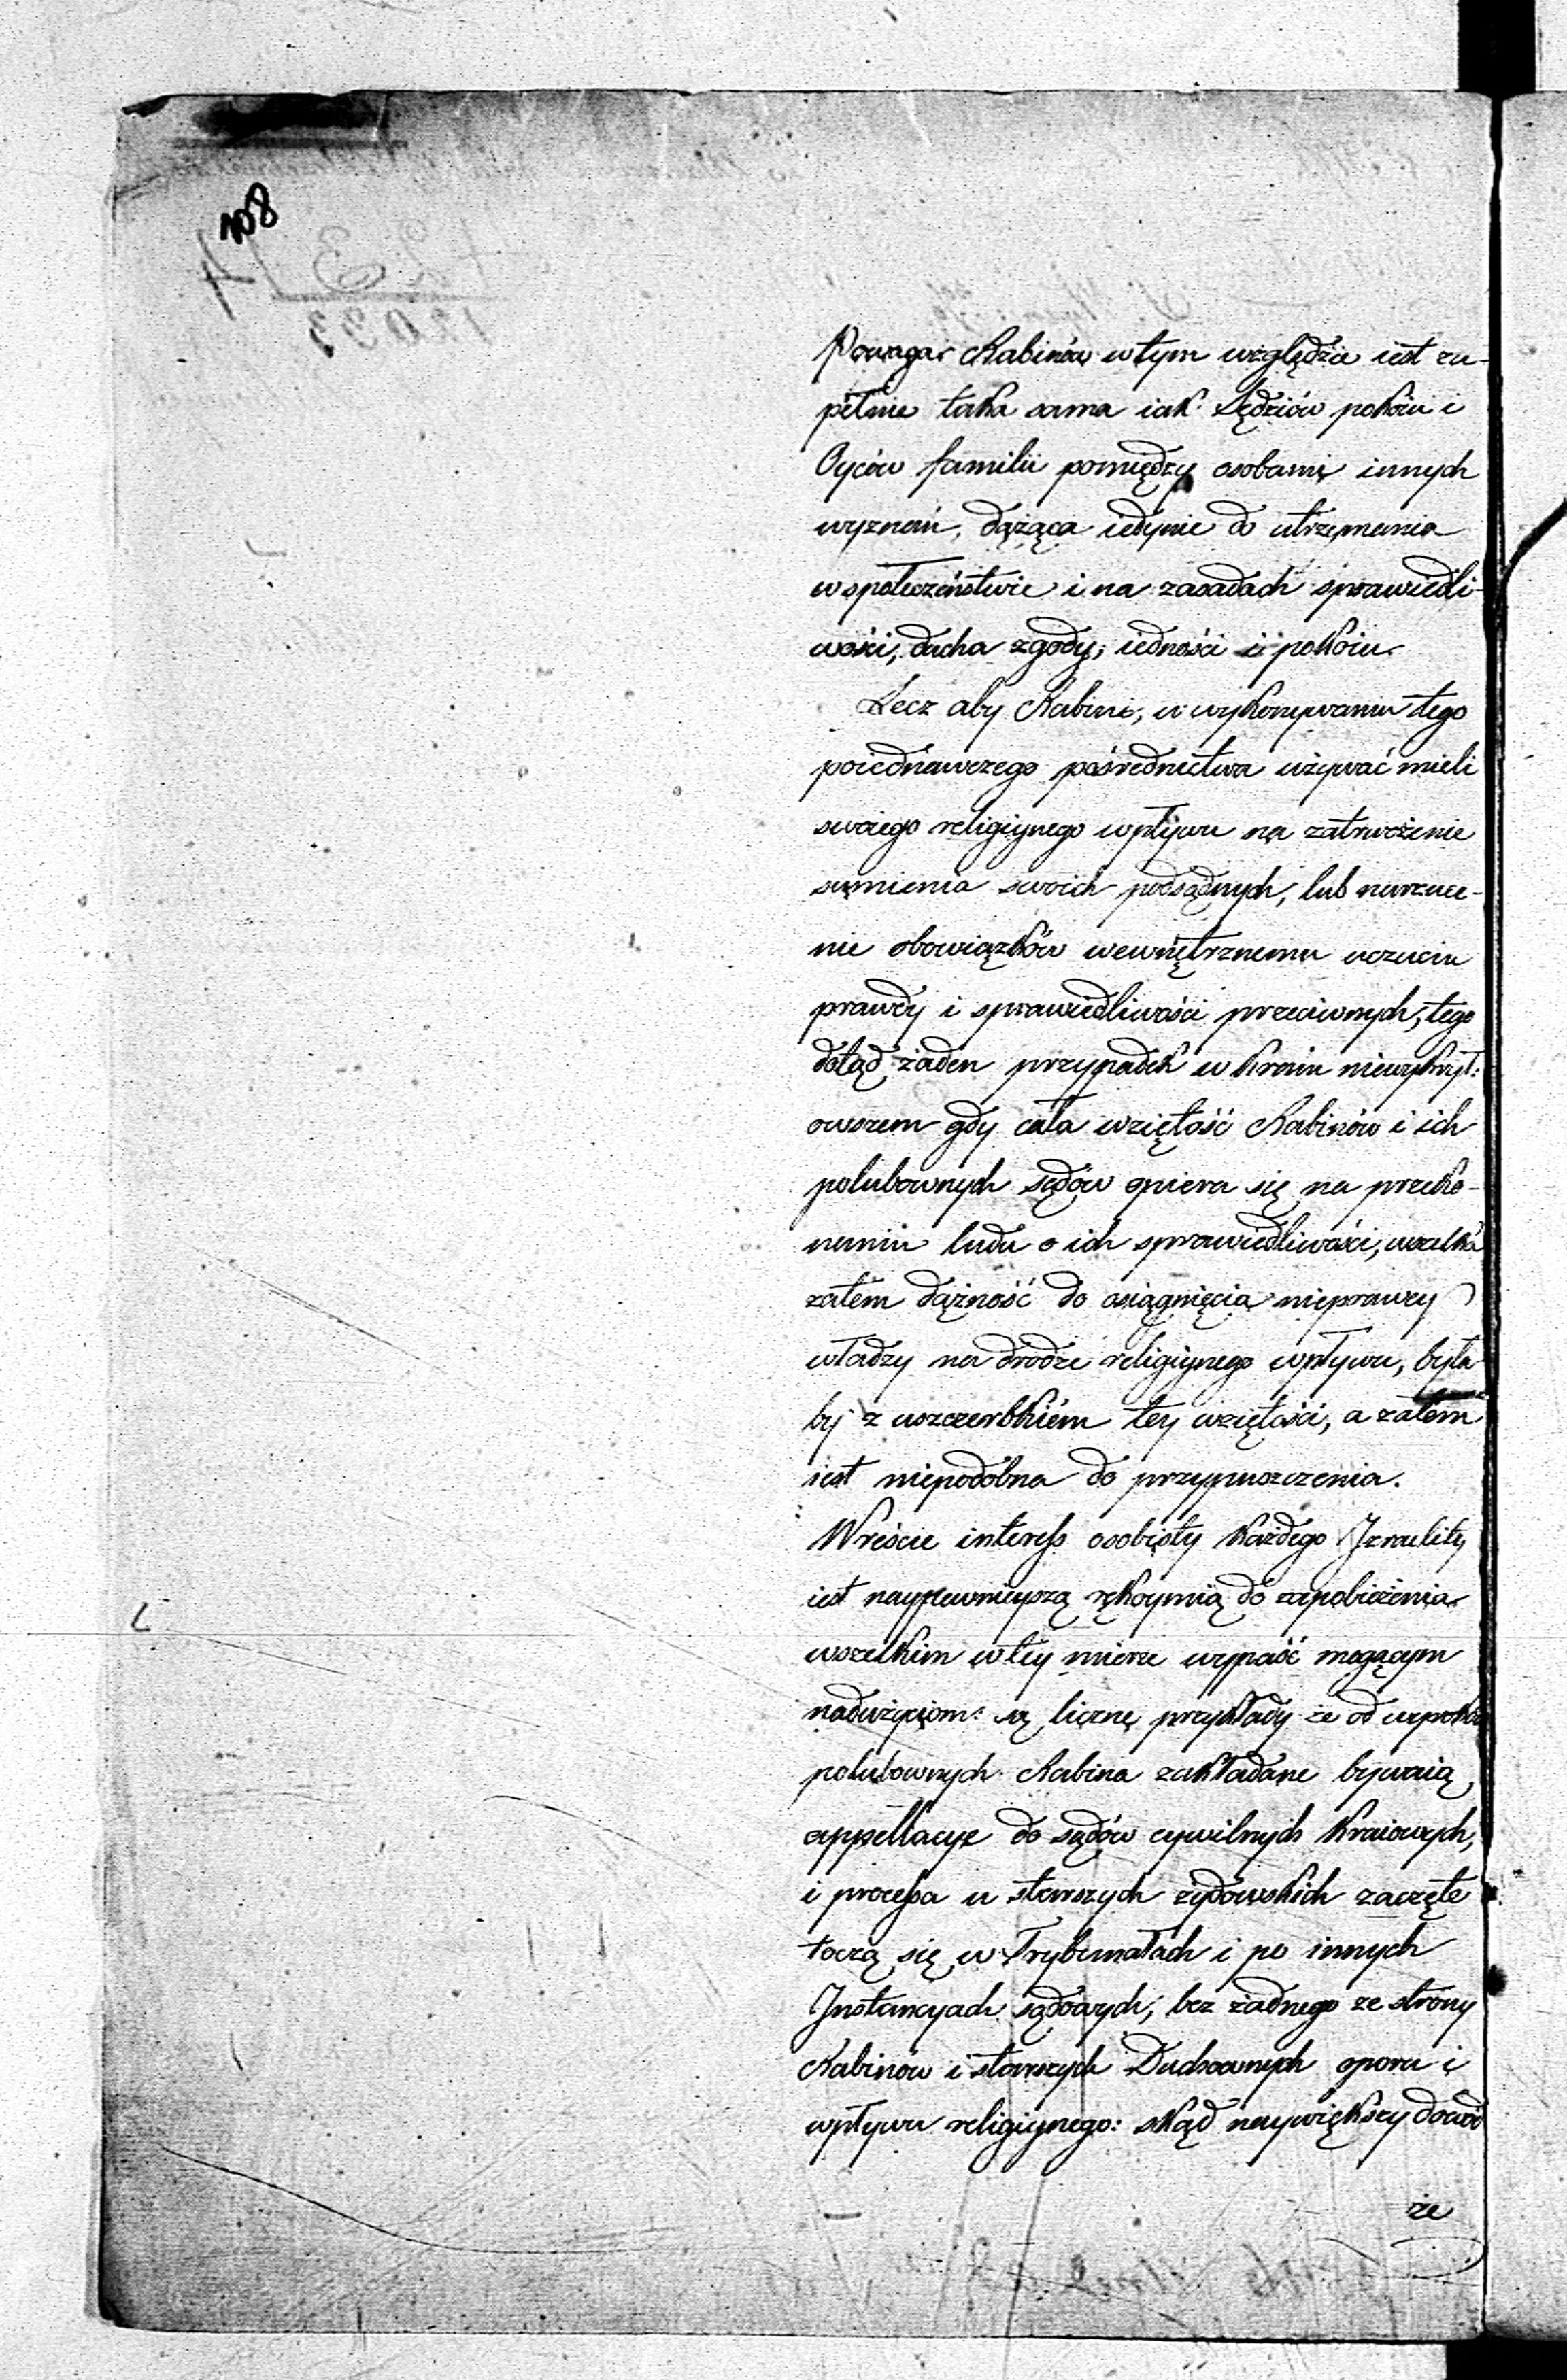 108
Powaga Rabinów w tym względzie iest zu-
pełnie taka sama iak Sędziów pokoiu i
Oyców familii pomiędzy osobami innych
wyznań, dążąca iedynie do utrzymania
w społeczeństwie i na zasadach sprawiedli-
wości, ducha zgody, iedności i pokoiu.
Lecz aby Rabini, w wykonywaniu tego
poiednawczego pośrednictwa używać mieli
swoiego religiynego wpływu na zatrwożenie
sumienia swoich podsądnych, lub narzuce-
nie obowiązków wewnętrznemu uczuciu
prawdy i sprawiedliwości przeciwnych, tego
dotąd żaden przypadek w kraiu niewykrył:
owszem gdy cała wziętość Rabinów i ich
polubownych sądów opiera się na przeko-
naniu ludu o ich sprawiedliwości, wszelka
zatem dążność do osiągnięcia nieprawey
władzy na drodze religiynego wpływu, była-
by z uszczerbkiem tey wziętości, a zatem
iest niepodobna do przypuszczenia.
Wreście interess osobisty każdego Izraelity
iest naypewnieyszą rękoymią do zapobieżenia
wszelkim w tey mierze wypaść mogącym
nadużyciom: są liczne przykłady że od
polubownych Rabina zakładane bywaią
appellacye do sądów cywilnych kraiowych,
i processa u starszych żydowskich zaczęte
toczą się w Trybunałach i po innych
Instancyach sądowych, bez żadnego ze strony
Rabinów i starszych Duchownych oporu i
wpływu religiynego: skąd naywiększy dowód
że